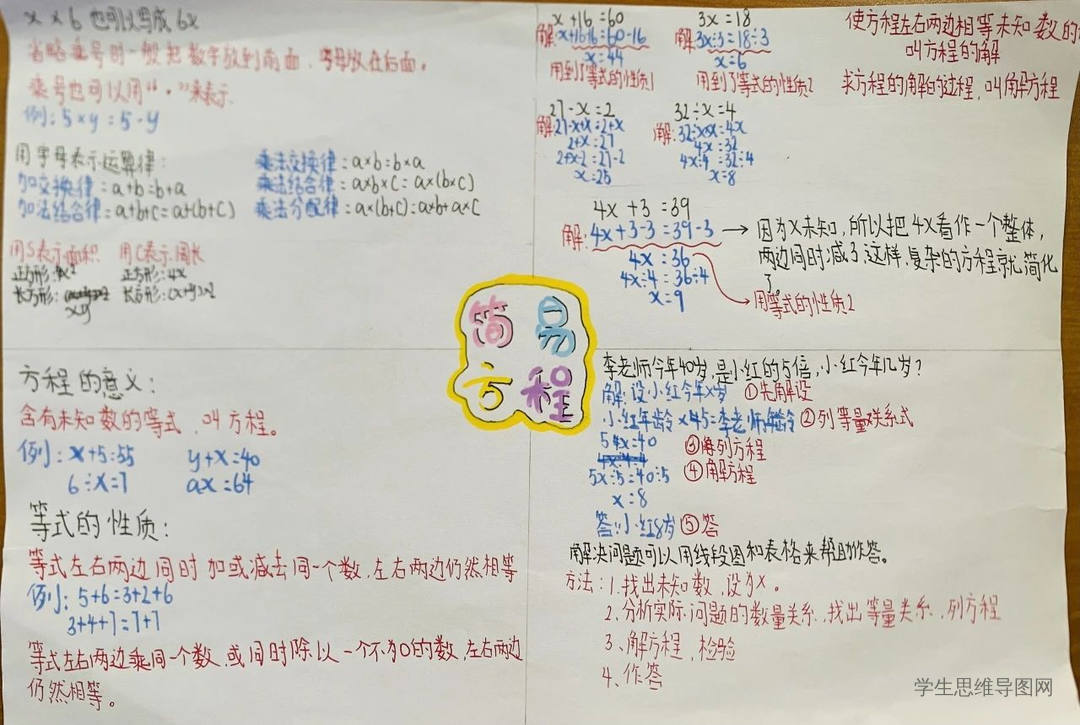 x×6也可以写成6x
省略乘号时一般把数字放到前面，字母放在后面。
乘号也可以用“·”来表示
例：5×y=5·y
用字母表示运算律：
加交换律：a+b=b+a
加法结合律：a+b+c=a+(b+c)
乘法交换律：a×b=b×a
乘法结合律：a×b×c=a×(b×c)
乘法分配律：a×(b+c)=a×b+a×c
用S表示面积 用C表示周长
正方形：x² 正方形：4x
长方形：xy 长方形：(x+y)×2
x+16=60
解：x+16-16=60-16
x=44
用到了等式的性质1
3x=18
解：3x÷3=18÷3
x=6
用到了等式的性质2
使方程左右两边相等未知数的
叫方程的解
求方程的解的过程，叫解方程
27-x=2
解：27-x+x=2+x
2+x=27
2+x-2=27-2
x=25
32÷x=4
解：32÷x×x=4x
4x=32
4x÷4=32÷4
x=8
4x+3=39
解：4x+3-3=39-3
4x=36
4x÷4=36÷4
x=9
因为x未知，所以把4x看作一个整体，
两边同时减了这样，复杂的方程就简化
了。
用等式的性质2
简易
方程
方程的意义：
含有未知数的等式，叫方程。
例：x+5=55 y+x=40
6÷x=7 ax=64
等式的性质：
等式左右两边同时加或减去同一个数，左右两边仍然相等
例：5+6=3+2+6
3+4+7=7+7
等式左右两边乘同一个数，或同时除以一个不为0的数，左右两边
仍然相等。
李老师今年40岁，是小红的5倍，小红今年几岁？
解：设小红今年x岁 ①先解设
小红年龄×5=李老师年龄 ②列等量关系式
5x=40 ③列方程
5x÷5=40÷5 ④解方程
x=8
答：小红8岁 ⑤答
解决问题可以用线段图和表格来帮助作答。
方法：1、找出未知数，设为x。
2、分析实际问题的数量关系，找出等量关系，列方程
3、解方程，检验
4、作答
学生思维导图网